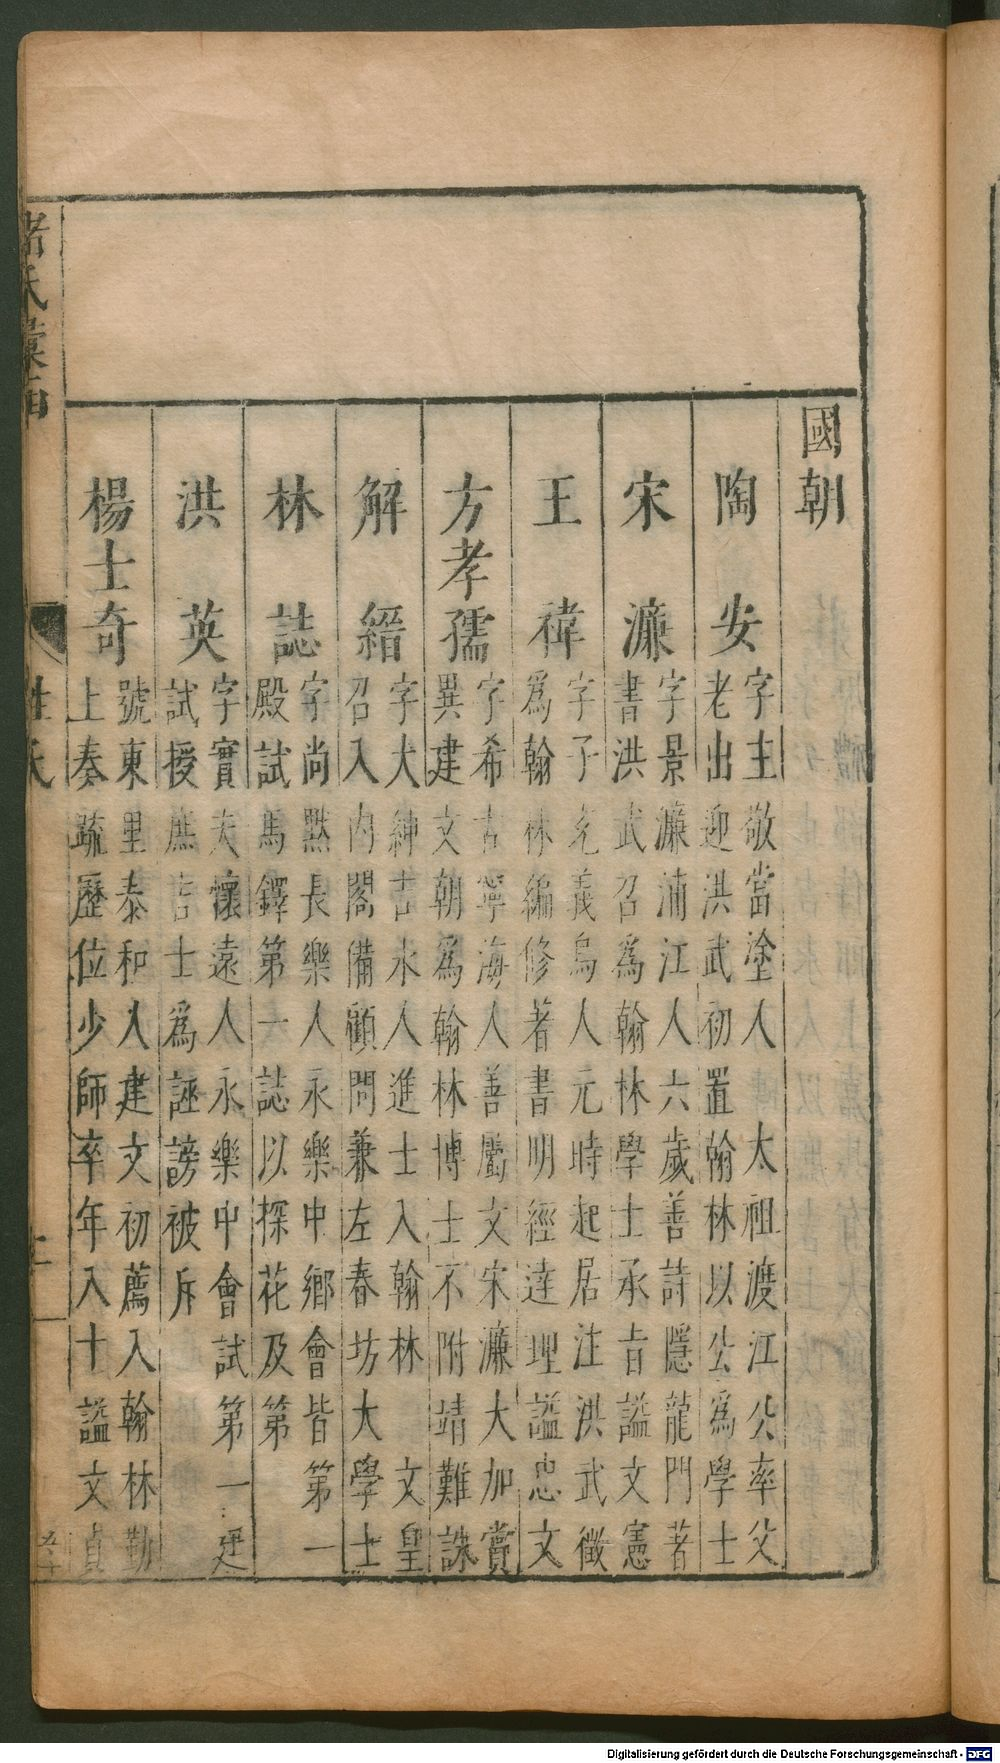 國朝
陶安
字主敬當塗人 太祖渡江公率父
老出迎洪武初置翰林以公為學士
宋濂
字景濂浦江人六歲善詩隱龍門著
書洪武召為翰林學士承旨謚文憲
王禕
字子充義烏人元時起居注洪武徵
為翰林編修著書明經達理謚忠文
方孝孺
字希古寧海人善屬文宋濂大加賞
異建文朝為翰林博士不附靖難誅
解縉
字大紳吉水人進士入翰林 文皇
召入內閣備顧問兼左春坊大學士
林誌
字尚默長樂人永樂中鄉會皆第一
殿試馬鐸第一誌以探花及第
洪英
字實夫懷遠人永樂中會試第一廷
試授庶吉士為誣謗被斥
楊士奇
號東里泰和人建文初薦入翰林勤
上奏疏歷位少師卒年八十謚文貞
諸氏彙
姓氏
Digitalisierung gefördert durch die Deutsche Forschungsgemeinschaft - DFG